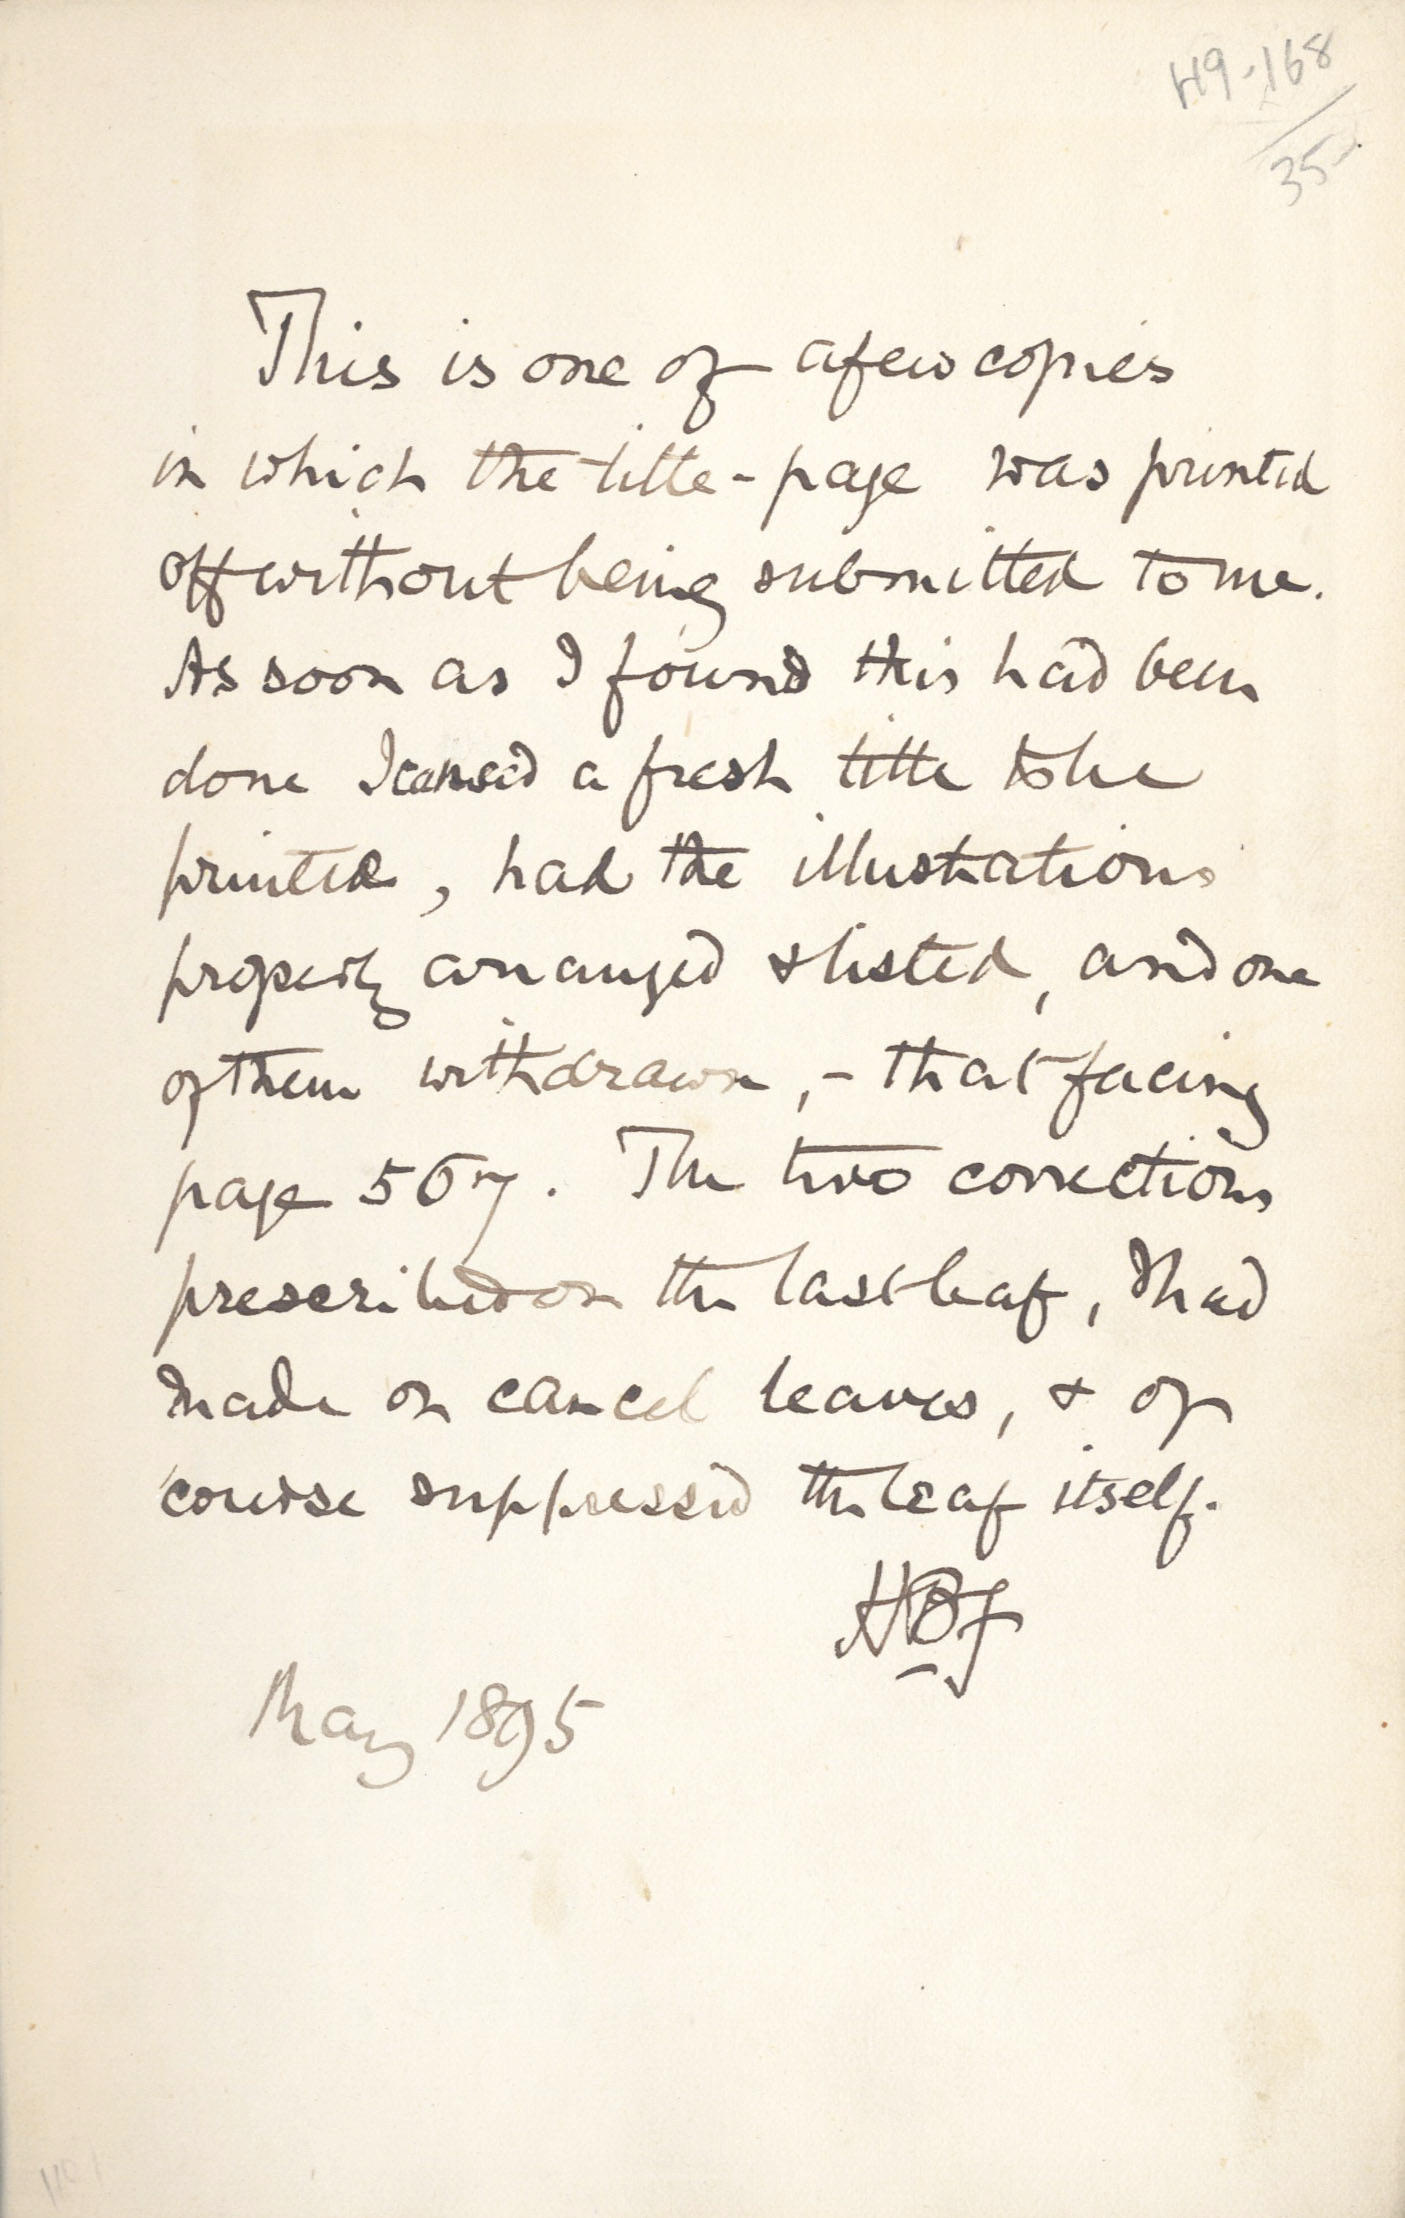 H9-168
35-
This is one of a few copies
in which the title-page was printed
off without being submitted to me.
As soon as I found this had been
done I caused a fresh title to be
printed, had the illustrations
properly arranged & listed, and one
of them withdrawn, - that facing
page 567. The two corrections
prescribed on the last leaf, I had
made on cancel leaves, & of
course suppressed the leaf itself.
HBF
May 1895